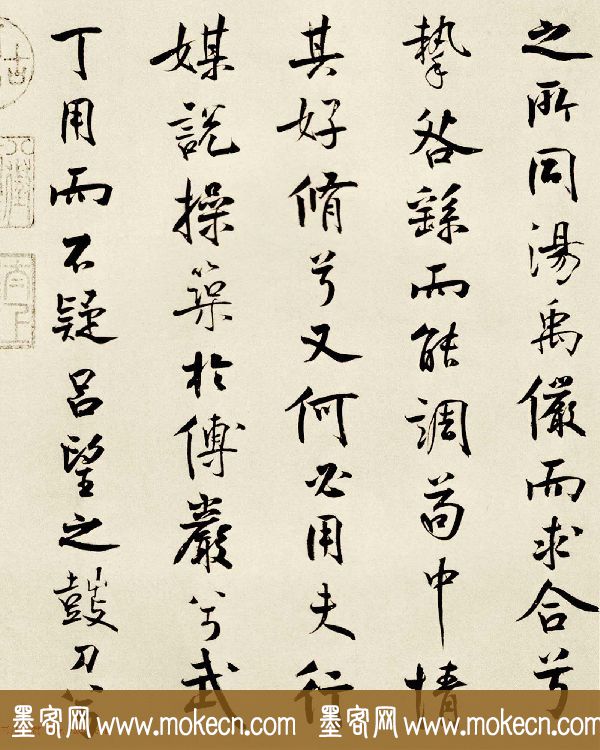 之所同湯禹儼而求合兮
摯咎繇而能調苟中情
其好脩兮又何必用夫行
媒說操築於傅巖兮武
丁用而不疑呂望之鼓刀兮
墨客网 www.mokecn.com 墨客网 www.mokecn.com